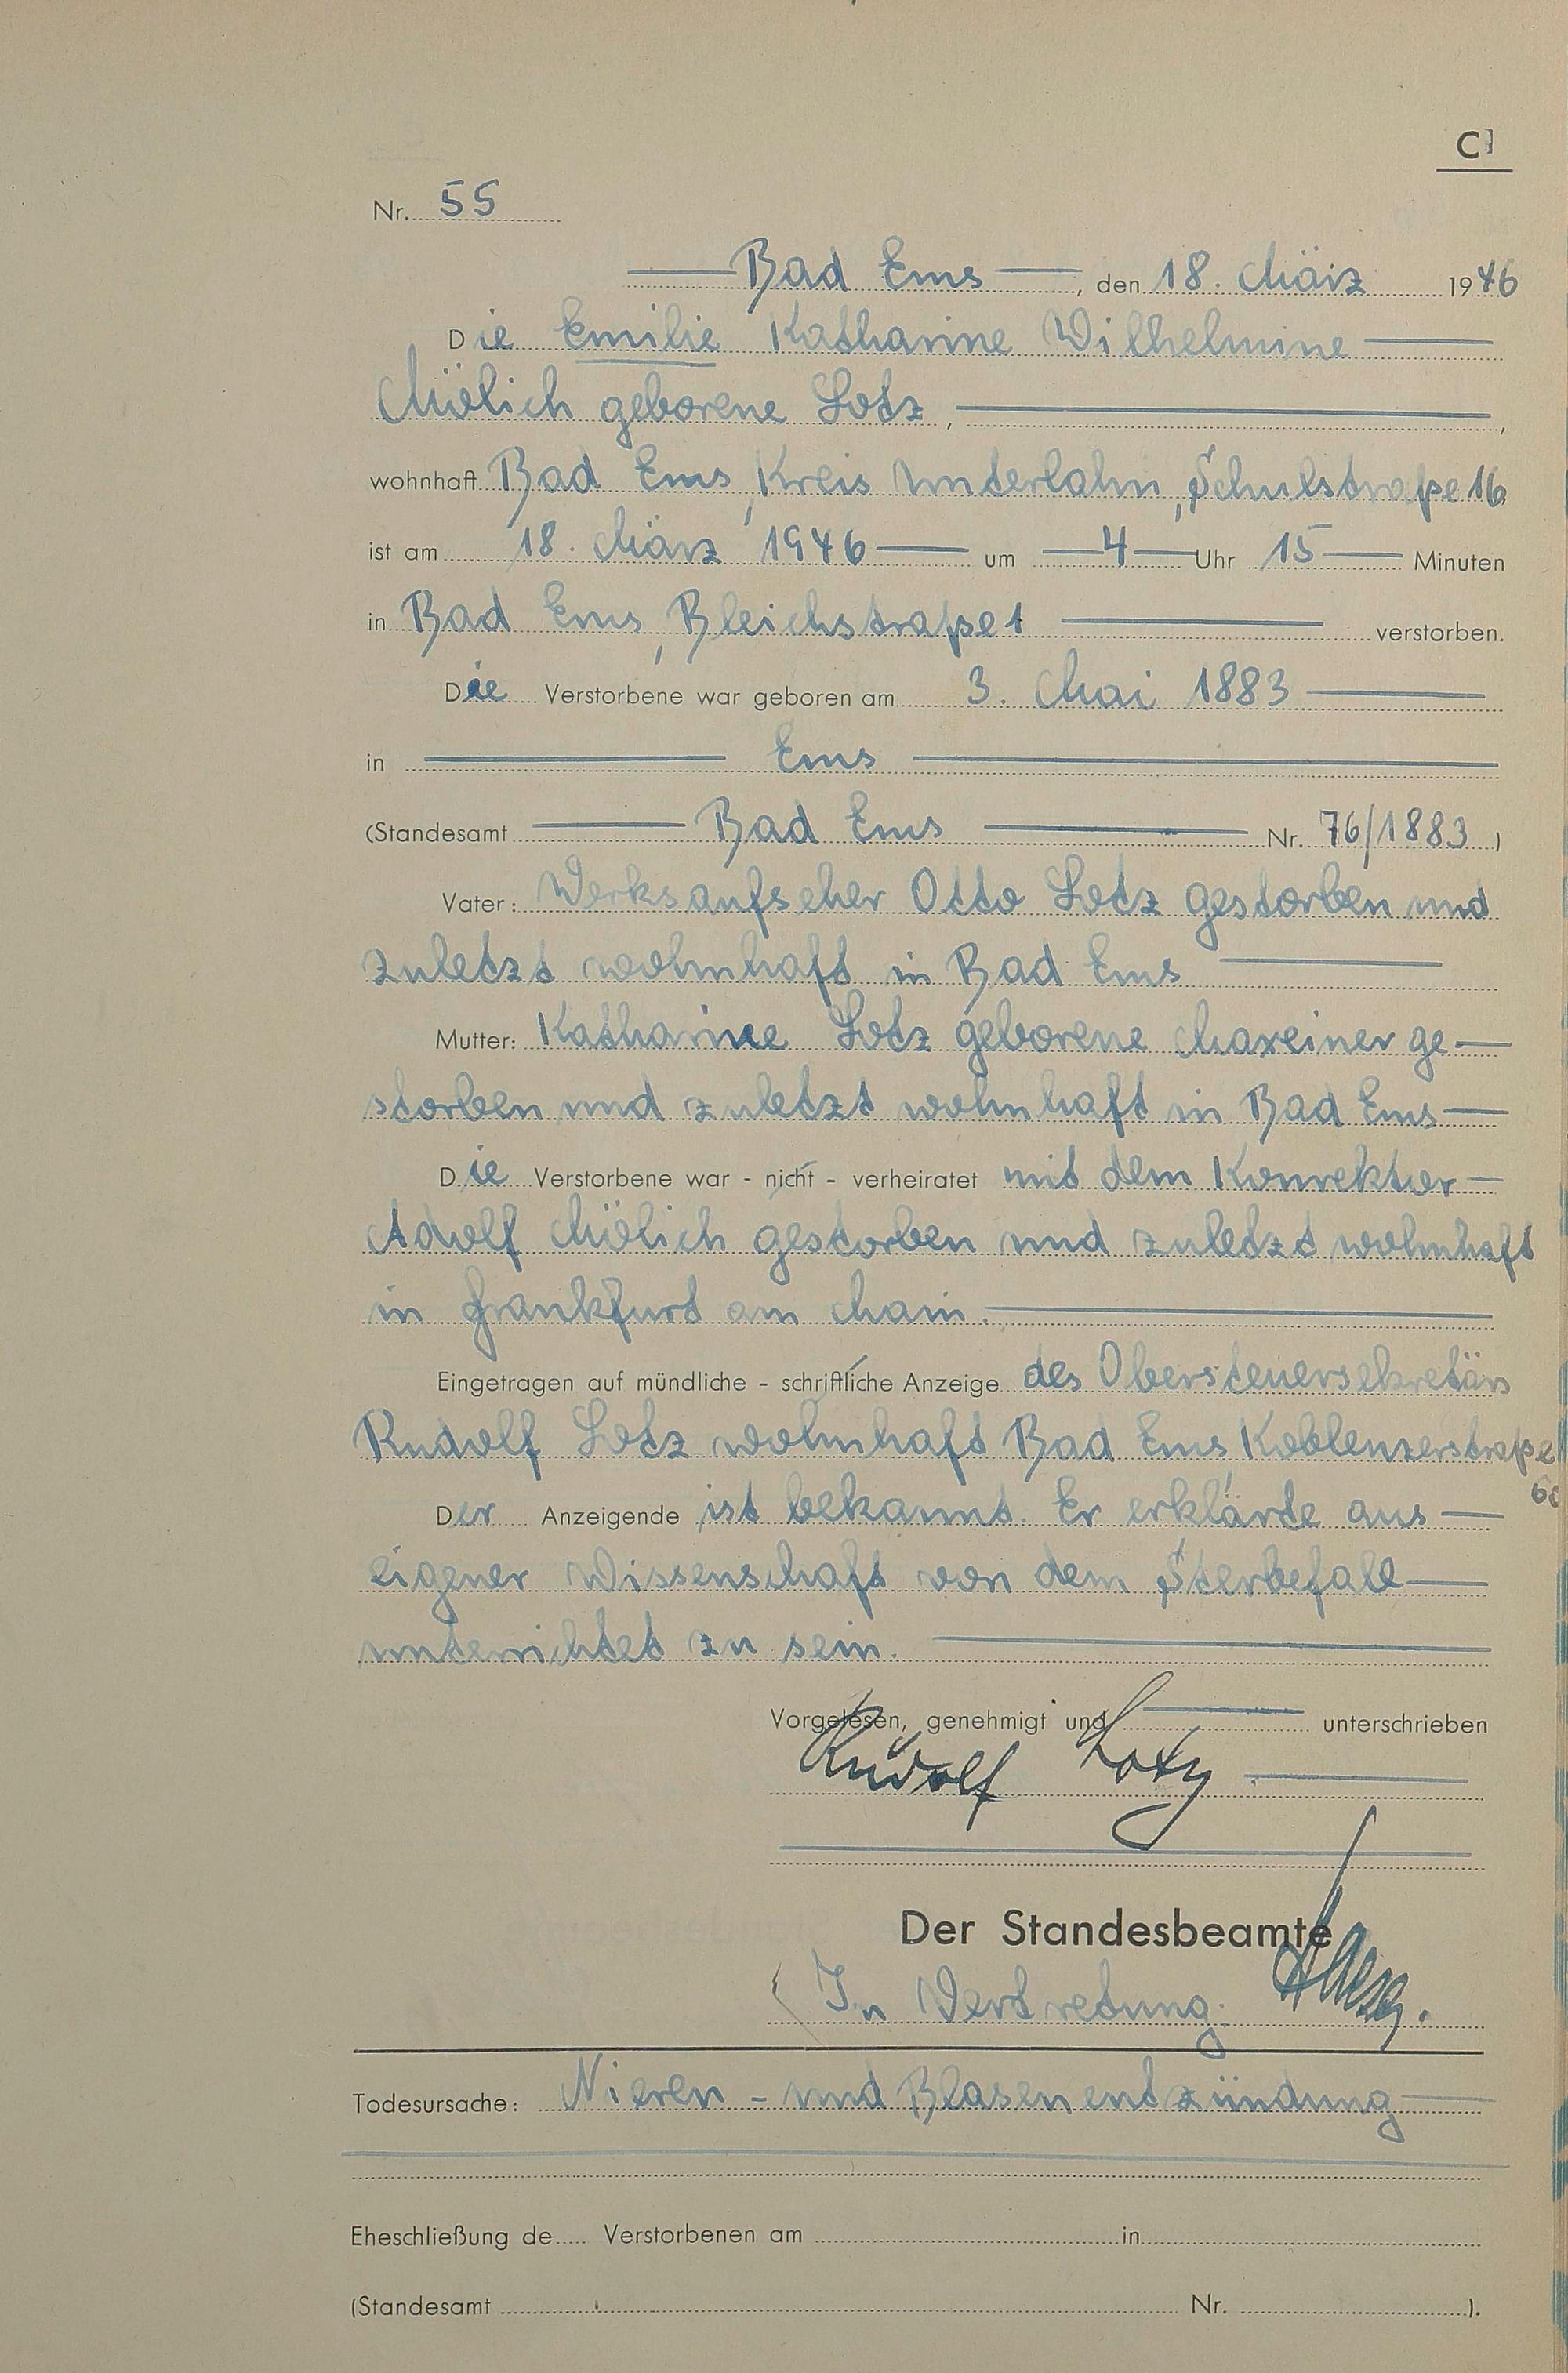 C
Nr. 55
Bad Ems, den 18. März 1946
Die Emilie Katharine Wilhelmine
Mölich geborene Lotz,
wohnhaft Bad Ems, Kreis Unterlahn, Schulstraße 16
ist am 18. März 1946 um 4 Uhr 15 Minuten
in Bad Ems, Bleichstraße 1 verstorben.
Die Verstorbene war geboren am 3. Mai 1883
in Ems
(Standesamt Bad Ems Nr. 76/1883)
Vater: Werksaufseher Otto Lotz gestorben und
zuletzt wohnhaft in Bad Ems
Mutter: Katharine Lotz geborene Maxeiner ge-
storben und zuletzt wohnhaft in Bad Ems
Die Verstorbene war - nicht - verheiratet mit dem Konrektor
Adolf Mölich gestorben und zuletzt wohnhaft
in Frankfurt am Main.
Eingetragen auf mündliche - schriftliche Anzeige des Obersteuersekretärs
Rudolf Lotz wohnhaft Bad Ems, Koblenzerstraße
Der Anzeigende ist bekannt. Er erklärte aus
eigener Wissenschaft von dem Sterbefall
unterrichtet zu sein.
Vorgelesen, genehmigt und unterschrieben
Rudolf Lotz
Der Standesbeamte
In Vertretung:
Todesursache: Nieren- und Blasenentzündung
Eheschließung de Verstorbenen am in
(Standesamt Nr. ).